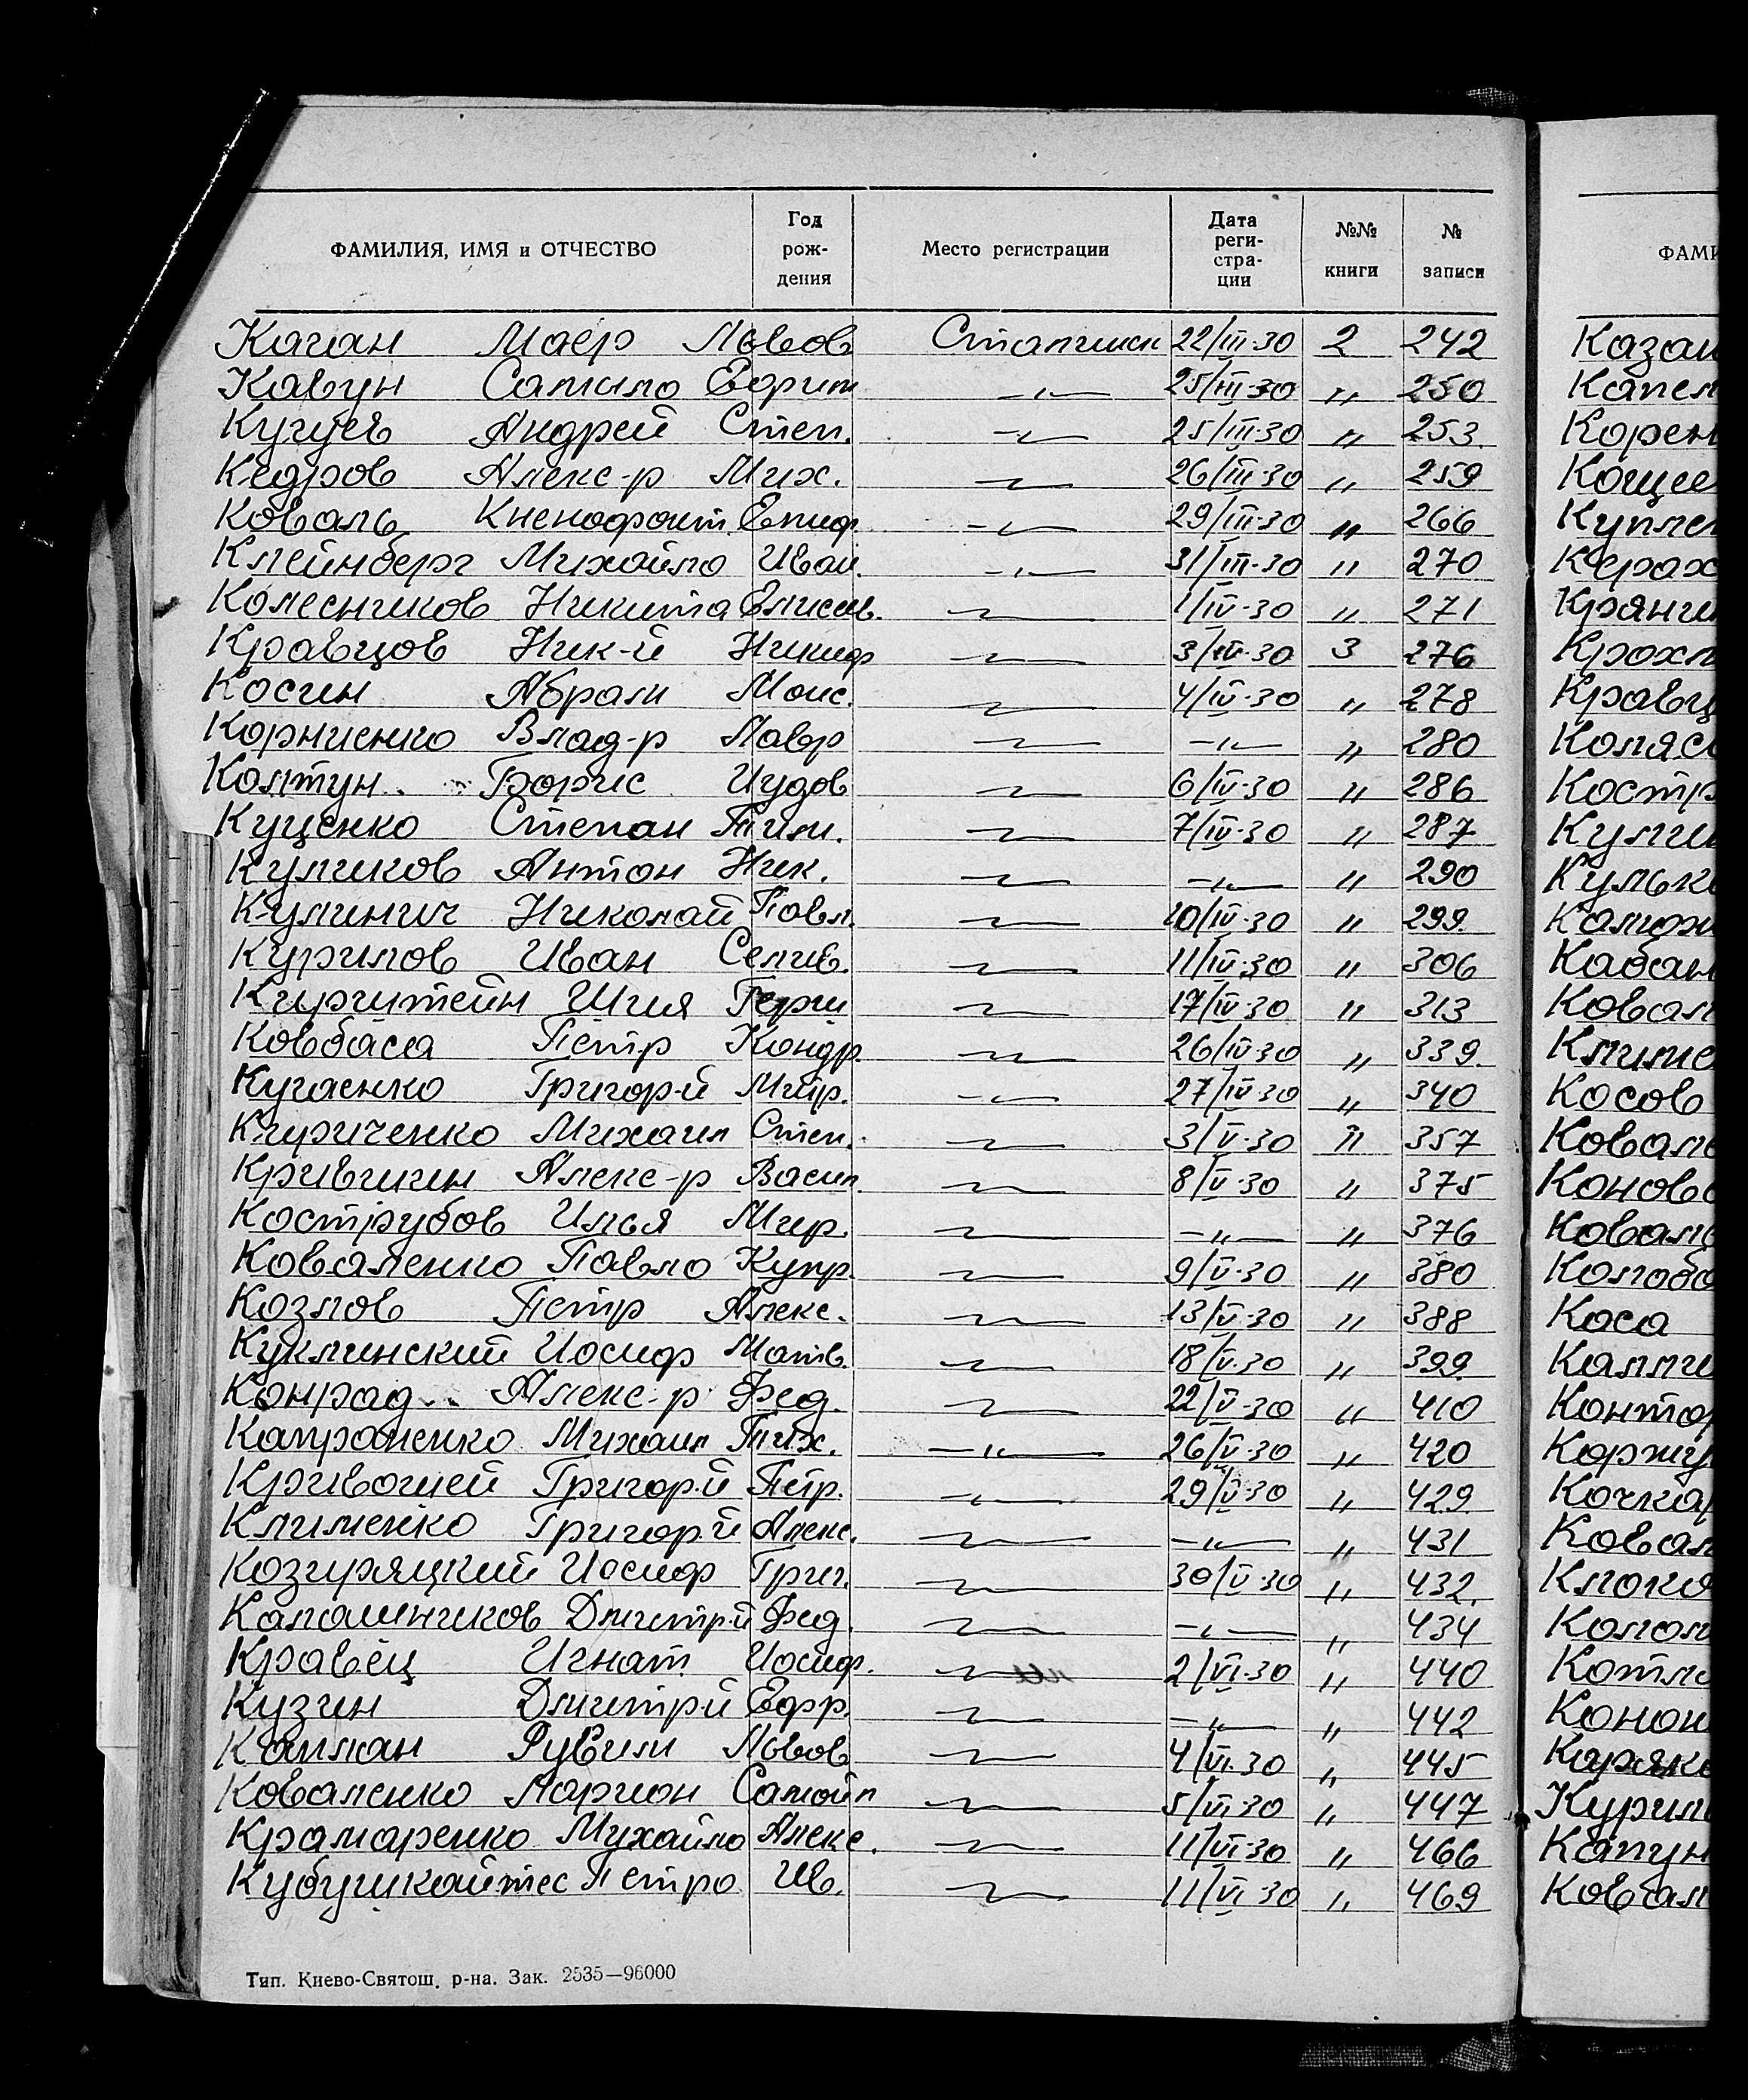 ФАМИЛИЯ, ИМЯ и ОТЧЕСТВО Год рож- дения Место регистрации Дата реги- стра- ции №№ книги № записи
Каган Маер Львов Сталинск 22/III-30 2 242
Кавун Самило Ефрим —"— 25/III-30 " 250
Кугуев Андрей Степ. —"— 25/III-30 " 253
Кедров Алекс-р Мих. —"— 26/III-30 " 259
Коваль Ксенофонт Епиф. —"— 29/III-30 " 266
Клейнберг Михайло Иван. —"— 31/III-30 " 270
Колесников Никита Елисев. —"— 1/IV-30 " 271
Кравцов Ник-й Никиф —"— 3/IV-30 3 276
Косин Абрам Моис. —"— 4/IV-30 " 278
Корниенко Влад-р Лавр —"— —"— " 280
Колтун Борис Иудов —"— 6/IV-30 " 286
Куценко Степан Тим. —"— 7/IV-30 " 287
Куликов Антон Ник. —"— —"— " 290
Кулинич Николай Павл. —"— 10/IV-30 " 299
Курилов Иван Селив. —"— 11/IV-30 " 306
Кирштейн Шия Герш —"— 17/IV-30 " 313
Ковбаса Пётр Кондр. —"— 26/IV-30 " 339
Григор-й —"— 27/IV-30 " 340
Кириченко Михаил Степ. —"— 3/V-30 " 357
Алекс-р Васил. —"— 8/V-30 " 375
Кострубов Илья —"— —"— " 376
Коваленко Павло Купр. —"— 9/V-30 " 380
Козлов Петр Алекс. —"— 13/V-30 " 388
Куклинский Иосиф Матв. —"— 18/V-30 " 399
Конрад Алекс-р Фед. —"— 22/V-30 " 410
Михаил Тих. —"— 26/V-30 " 420
Кривошей Григор-й Петр. —"— 29/V-30 " 429
Клименко Григор-й Алекс. —"— —"— " 431
Козиряцкий Иосиф Григ. —"— 30/V-30 " 432
Калашников Дмитр-й Фед. —"— —"— " 434
Кравец Игнат Иосиф. —"— 2/VI-30 " 440
Кузин Дмитр-й Ефр. —"— —"— " 442
Каплан Рувим Львов —"— 4/VI-30 " 445
Коваленко Ларион Самойл —"— 5/VI-30 " 447
Крамаренко Михайло Алекс. —"— 11/VI-30 " 466
Петро Ив. —"— 11/VI-30 " 469
Тип. Киево-Святош. р-на. Зак. 2535—96000
ФАМИ
Казан
Капел
Корен
Кощее
Купле
Керах
Кряни
Крохм
Кравц
Коляс
Костр
Кулик
Кульк
Кабан
Ковал
Климе
Косов
Ковале
Коново
Ковал
Колоб
Коса
Контор
Коржу
Кочкар
Ковал
Колом
Котл
Конон
Куряко
Курил
Капун
Ковбал